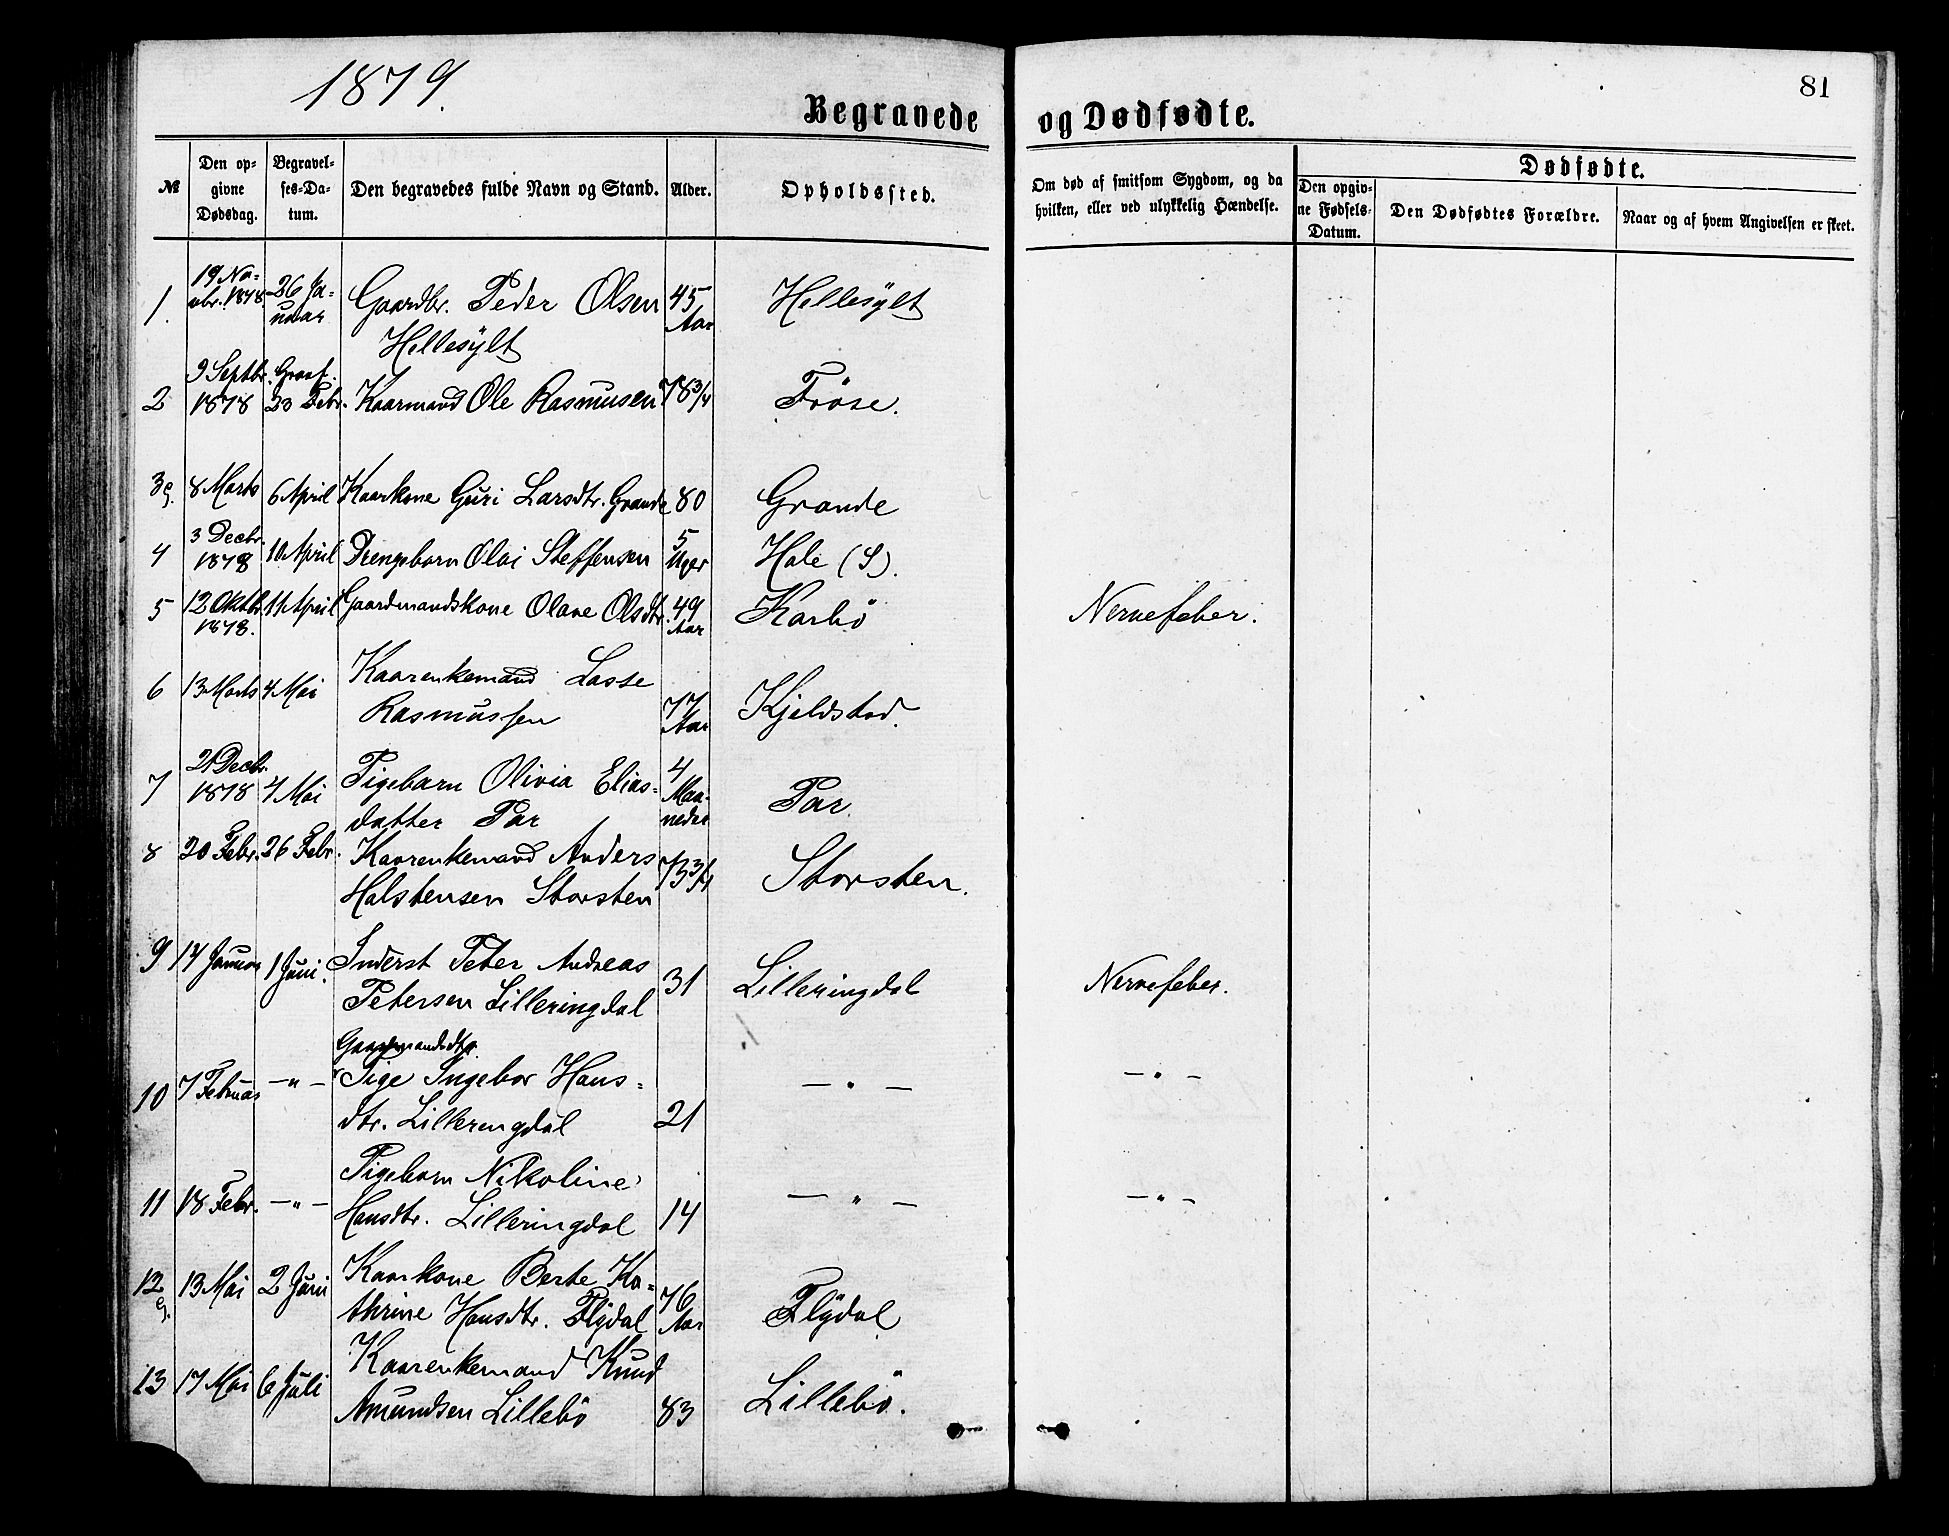 1879.
81
Begravede og Dødfødte.
№
Den opgivne Dødsdag.
Begravelses-Datum.
Den begravedes fulde Navn og Stand.
Alder.
Opholdssted.
Om død af smitsom Sygdom, og da hvilken, eller ved ulykkelig Hændelse.
Dødfødte.
Den opgivne Fødsels-Datum.
Den Dødfødtes Forældre.
Naar og af hvem Angivelsen er skeet.
1. 19 No=vbr. 1878 26 Ja=nuar Gaardbr. Peder Olsen 45 Aar Hellesylt
Hellesylt
2 9 Septbr. 1878 Graaf. 23 Febr. Kaarmand Ole Rasmusen 78 3/4 Frøse.
3 g. 8 Marts 6 April Kaarkone Guri Larsdtr. Grande 80 Grande
4 3 Decbr. 1878 10 April Drengebarn Olai Steffensen 5 Uger Hole (S).
5 12 Oktbr. 1878. 11 April Gaardmandskone Olave Olsdtr. 49 Aar Korsbø Nervefeber.
6 13 Marts 4 Mai Kaarenkemand Lasse
Rasmussen 77 Aar Kjeldstad.
7 21 Decbr. 1878 4 Mai Pigebarn Olivia Elias=
datter Par 4 Maa=neder Par.
8 20 Febr. 26 Febr. Kaarenkemand Anders
Halstensen Storsten 73 3/4 Storsten.
9 14 Januar 1 Juni. Inderst Peter Andreas
Petersen Lilleringdal 31 Lilleringdal Nervefeber.
Gaardmandsdtr.
10 7 Februar — " — Pige Ingebor Hans=
dtr. Lilleringdal 21 — " — — " —
11 18 Febr. — " — Pigebarn Nikoline
Hansdtr. Lilleringdal 14 — " — — " —
12 g. 13 Mai 2 Juni Kaarkone Berte Ka=
thrine Hansdtr. Flydal 76 Aar Flydal
13 17 Mai 6 Juli Kaarenkemand Knud
Amundsen Lillebø 83 Lillebø.